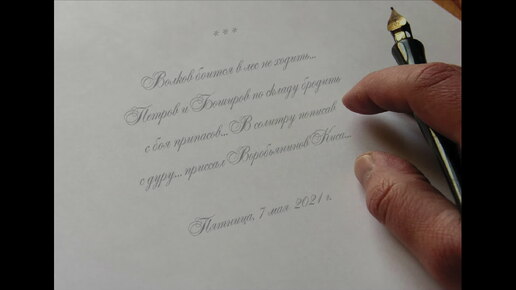 * * *
Волков боится в лес не ходить...
Петров и Боширов по складу бродить
с боя припасов... В селитру пописав
с дуру... приссал Воробьянинов Киса...
Пятница, 7 мая 2021 г.